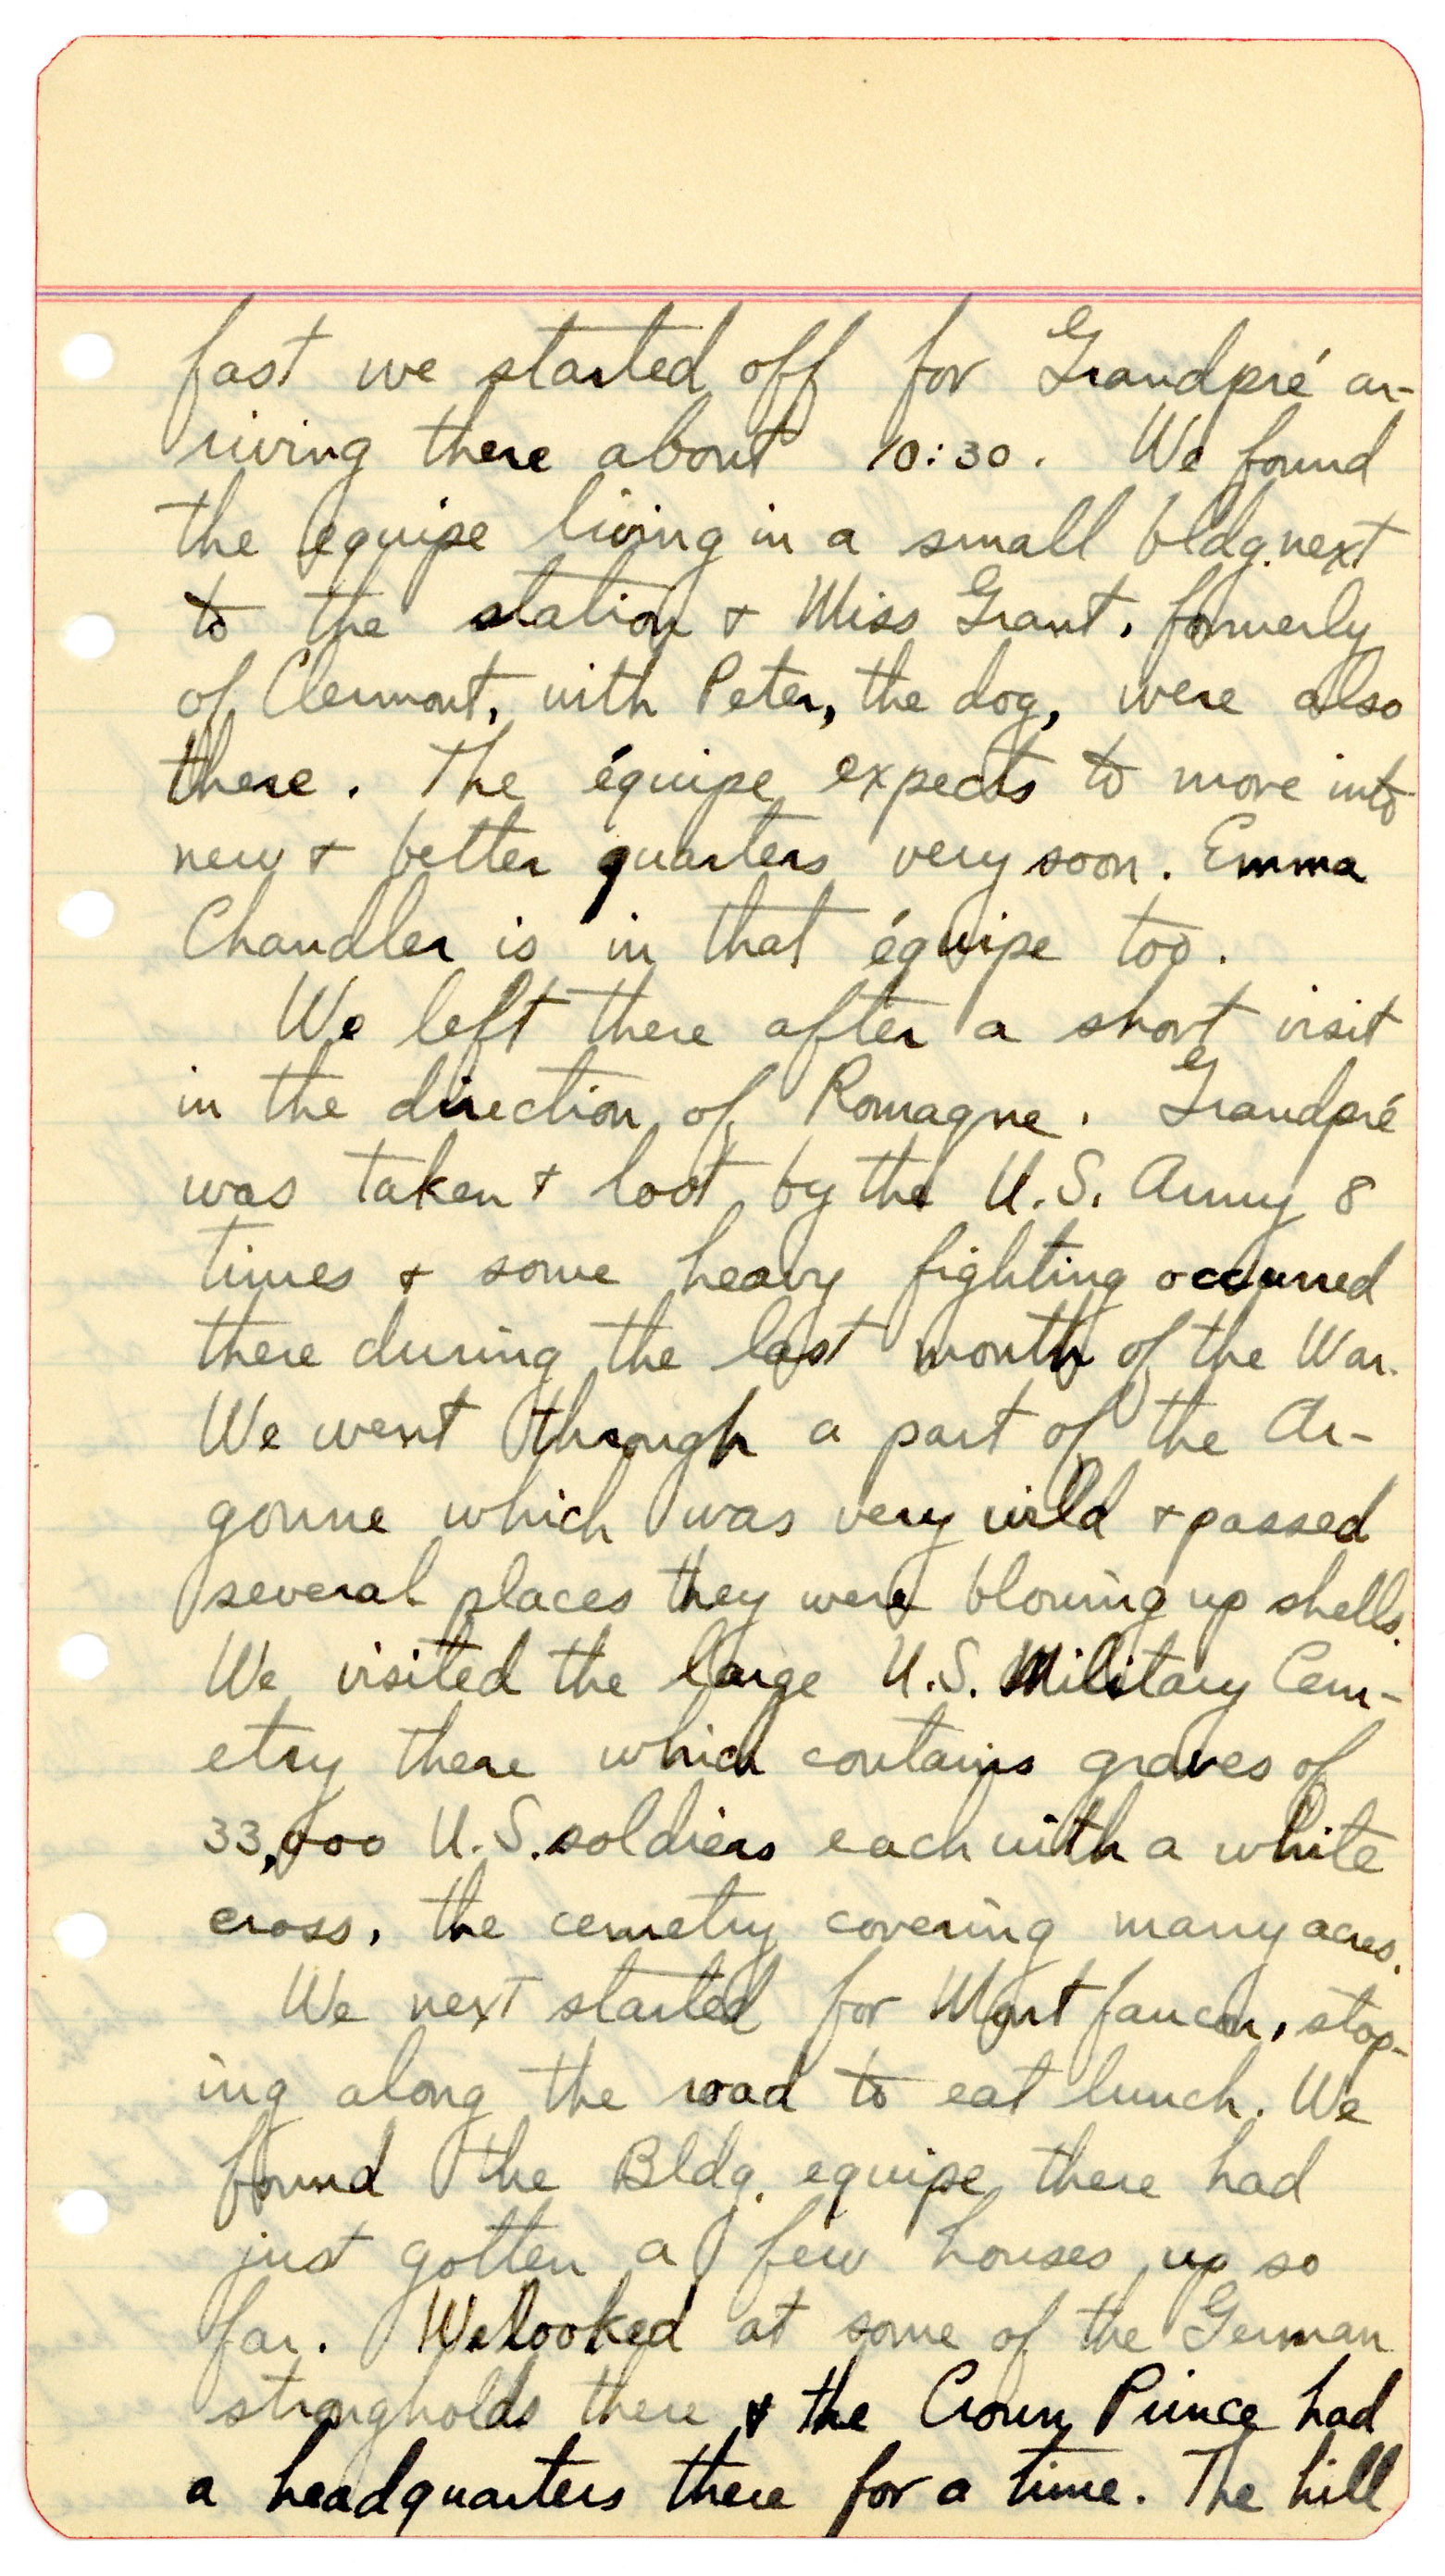 fast we started off for Grandpré ar-
riving there about 10:30. We found
the equipe living in a small bldg. next
to the station + Miss Grant, formerly
of Clermont, with Peter, the dog, were also
there. The équipe expects to move into
new + better quarters very soon. Emma
Chandler is in that équipe too.
We left there after a short visit
in the direction of Romagne. Grandpré
was taken + lost by the U.S. Army 8
times + some heavy fighting occurred
there during the last month of the War.
We went through a part of the Ar-
gonne which was very wild + passed
several places they were blowing up shells.
We visited the large U.S. Military Cem-
etry there which contains graves of
33,000 U.S. soldiers each with a white
cross, the cemetry covering many acres.
We next started for Montfaucon, stop-
ing along the road to eat lunch. We
found the Bldg. equipe there had
just gotten a few houses up so
far. We looked at some of the German
strongholds there + the Crown Prince had
a headquarters there for a time. The hill